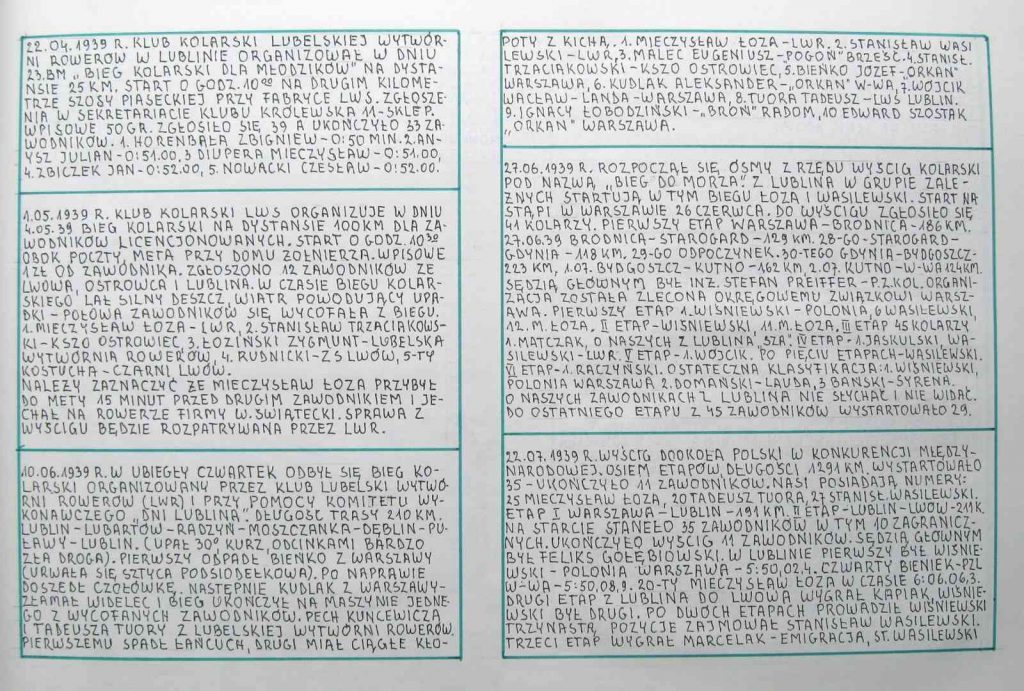 22.04.1939 R. KLUB KOLARSKI LUBELSKIEJ WYTWÓR-
NI ROWERÓW W LUBLINIE ORGANIZOWAŁ W DNIU
23.BM „BIEG KOLARSKI DLA MŁODZIKÓW" NA DYSTA-
NSIE 25 KM. START O GODZ. 10²⁰ NA DRUGIM KILOME-
TRZE SZOSY PIASECKIEJ PRZY FABRYCE LWS. ZGŁOSZE-
NIA W SEKRETARIACIE KLUBU KRÓLEWSKA 11-SKLEP.
WPISOWE 50 GR. ZGŁOSIŁO SIĘ 39 A UKOŃCZYŁO 33 ZA-
WODNIKÓW. 1. HORENBAŁA ZBIGNIEW-0:50 MIN. 2. AN-
YSZ JULIAN-0:51.00, 3 DIUPERA MIECZYSŁAW-0:51.00,
4. ZBICZEK JAN-0:52.00, 5. NOWACKI CZESŁAW-0:52.00.
1.05.1939 R. KLUB KOLARSKI LWS ORGANIZUJE W DNIU
4.05.39 BIEG KOLARSKI NA DYSTANSIE 100KM DLA ZA-
WODNIKÓW LICENCJONOWANYCH. START O GODZ. 10³⁰
OBOK POCZTY, META PRZY DOMU ŻOŁNIERZA. WPISOWE
1 ZŁ OD ZAWODNIKA. ZGŁOSZONO 12 ZAWODNIKÓW ZE
LWOWA, OSTROWCA I LUBLINA. W CZASIE BIEGU KOLAR-
SKIEGO LAŁ SILNY DESZCZ, WIATR POWODUJĄCY UPA-
DKI - POŁOWA ZAWODNIKÓW SIĘ WYCOFAŁA Z BIEGU.
1. MIECZYSŁAW ŁOZA-LWR, 2. STANISŁAW TRZACIAKOWS-
KI-KSZO OSTROWIEC, 3. ŁOZIŃSKI ZYGMUNT-LUBELSKA
WYTWÓRNIA ROWERÓW, 4. RUDNICKI-ZS LWÓW, 5-TY
KOSTUCHA-CZARNI LWÓW.
NALEŻY ZAZNACZYĆ ŻE MIECZYSŁAW ŁOZA PRZYBYŁ
DO METY 15 MINUT PRZED DRUGIM ZAWODNIKIEM I JE-
CHAŁ NA ROWERZE FIRMY W. ŚWIĄTECKI. SPRAWA Z
WYŚCIGU BĘDZIE ROZPATRYWANA PRZEZ LWR.
10.06.1939 R. W UBIEGŁY CZWARTEK ODBYŁ SIĘ BIEG KO-
LARSKI ORGANIZOWANY PRZEZ KLUB LUBELSKI WYTWÓ-
RNI ROWERÓW (LWR) I PRZY POMOCY KOMITETU WY-
KONAWCZEGO „DNI LUBLINA". DŁUGOŚĆ TRASY 210 KM.
LUBLIN-LUBARTÓW-RADZYŃ-MOSZCZANKA-DĘBLIN-PU-
ŁAWY-LUBLIN. (UPAŁ 30° KURZ, ODCINKAMI BARDZO
ZŁA DROGA). PIERWSZY ODPADŁ BIEŃKO Z WARSZAWY
(URWAŁA SIĘ SZTYCA PODSIODEŁKOWA). PO NAPRAWIE
DOSZEDŁ CZOŁÓWKĘ. NASTĘPNIE KUDLAK Z WARSZAWY-
ZŁAMAŁ WIDELEC I BIEG UKOŃCZYŁ NA MASZYNIE JEDNE-
GO Z WYCOFANYCH ZAWODNIKÓW. PECH KUNCEWICZA
I TADEUSZA TUORY Z LUBELSKIEJ WYTWÓRNI ROWERÓW.
PIERWSZEMU SPADŁ ŁAŃCUCH, DRUGI MIAŁ CIĄGŁE KŁO-
POTY Z KICHĄ. 1. MIECZYSŁAW ŁOZA-LWR. 2. STANISŁAW WASI
LEWSKI-LWR, 3. MALEC EUGENIUSZ-„POGOŃ" BRZEŚĆ. 4. STANISŁ.
TRZACIAKOWSKI-KSZO OSTROWIEC, 5. BIEŃKO JÓZEF-„ORKAN"
WARSZAWA, 6. KUDLAK ALEKSANDER-„ORKAN" W-WA, 7. WÓJCIK
WACŁAW-LANDA-WARSZAWA, 8. TUORA TADEUSZ-LWS LUBLIN.
9. IGNACY ŁOBODZIŃSKI-„BROŃ" RADOM, 10 EDWARD SZOSTAK
„ORKAN" WARSZAWA.
27.06.1939 R. ROZPOCZĄŁ SIĘ ÓSMY Z RZĘDU WYŚCIG KOLARSKI
POD NAZWĄ „BIEG DO MORZA". Z LUBLINA W GRUPIE ZALE-
ŻNYCH STARTUJĄ W TYM BIEGU ŁOZA I WASILEWSKI. START NA
STĄPI W WARSZAWIE 26 CZERWCA. DO WYŚCIGU ZGŁOSIŁO SIĘ
41 KOLARZY. PIERWSZY ETAP WARSZAWA-BRODNICA-186 KM.
27.06.39 BRODNICA-STAROGARD-129 KM. 28-GO-STAROGARD-
GDYNIA-118 KM. 29-GO ODPOCZYNEK. 30-TEGO GDYNIA-BYDGOSZCZ-
223 KM, 1.07. BYDGOSZCZ-KUTNO-162 KM, 2.07. KUTNO-W-WA 124KM.
SĘDZIĄ GŁÓWNYM BYŁ INŻ. STEFAN PREIFFER-P.Z.KOL. ORGANI-
ZACJA ZOSTAŁA ZLECONA OKRĘGOWEMU ZWIĄZKOWI WARSZ-
AWA. PIERWSZY ETAP 1. WIŚNIEWSKI-POLONIA, 6 WASILEWSKI,
12. M. ŁOZA. II ETAP-WIŚNIEWSKI, 11. M. ŁOZA. III ETAP 45 KOLARZY
1. MATCZAK, O NASZYCH Z LUBLINA „SZA". IV ETAP-1. JASKULSKI, WA-
SILEWSKI-LWR. V ETAP-1. WÓJCIK. PO PIĘCIU ETAPACH-WASILEWSKI.
VI ETAP-1. RACZYŃSKI. OSTATECZNA KLASYFIKACJA: 1. WIŚNIEWSKI,
POLONIA WARSZAWA 2. DOMAŃSKI-LAUDA, 3 BAŃSKI-SYRENA.
O NASZYCH ZAWODNIKACH Z LUBLINA NIE SŁYCHAĆ I NIE WIDAĆ.
DO OSTATNIEGO ETAPU Z 45 ZAWODNIKÓW WYSTARTOWAŁO 29.
22.07.1939 R. WYŚCIG DOOKOŁA POLSKI W KONKURENCJI MIĘDZY-
NARODOWEJ. OSIEM ETAPÓW, DŁUGOŚCI 1291 KM, WYSTARTOWAŁO
35-UKOŃCZYŁO 11 ZAWODNIKÓW. NASI POSIADAJĄ NUMERY:
25 MIECZYSŁAW ŁOZA, 20 TADEUSZ TUORA, 27 STANISŁ. WASILEWSKI.
ETAP I WARSZAWA-LUBLIN-191 KM. II ETAP-LUBLIN-LWÓW-211K.
NA STARCIE STANĘŁO 35 ZAWODNIKÓW W TYM 10 ZAGRANICZ-
NYCH. UKOŃCZYŁO WYŚCIG 11 ZAWODNIKÓW. SĘDZIĄ GŁÓWNYM
BYŁ FELIKS GOŁĘBIOWSKI. W LUBLINIE PIERWSZY BYŁ WIŚNIE-
WSKI-POLONIA WARSZAWA-5:50,02,4. CZWARTY BIENIEK-PZL
W-WA-5:50,08,9. 20-TY MIECZYSŁAW ŁOZA W CZASIE 6:06,06,3.
DRUGI ETAP Z LUBLINA DO LWOWA WYGRAŁ KAPIAK, WIŚNIE-
WSKI BYŁ DRUGI. PO DWÓCH ETAPACH PROWADZIŁ WIŚNIEWSKI
TRZYNASTĄ POZYCJE ZAJMOWAŁ STANISŁAW WASILEWSKI.
TRZECI ETAP WYGRAŁ MARCELAK-EMIGRACJA, ST. WASILEWSKI